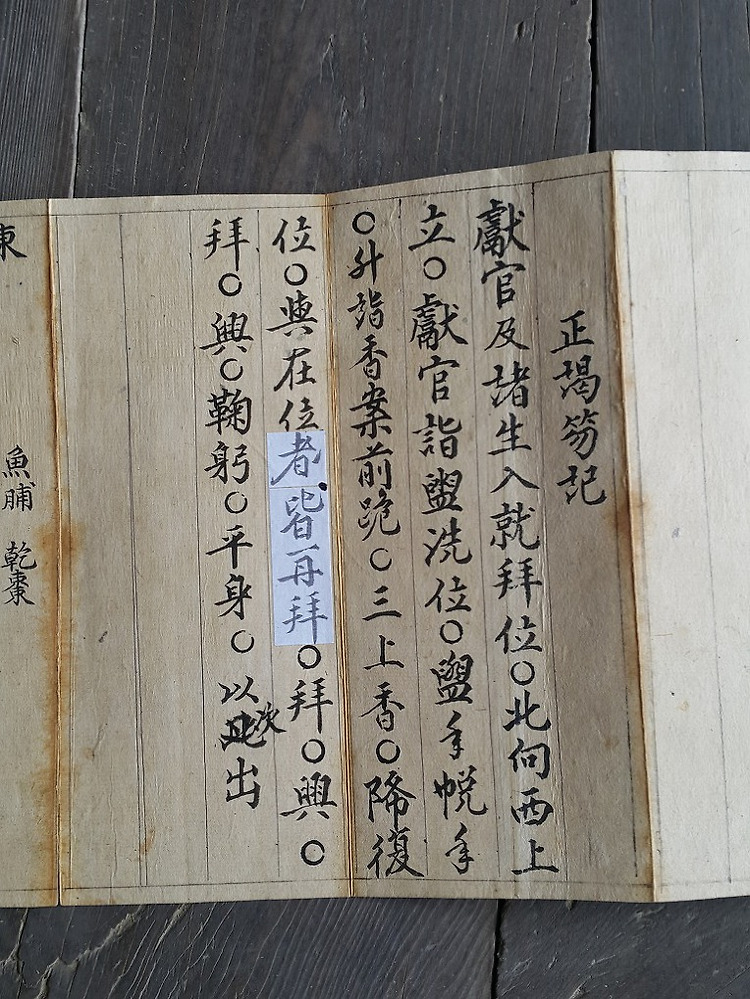 正謁笏記
獻官及諸生入就拜位○北向西上
立○獻官詣盥洗位○盥手帨手
○升詣香案前跪○三上香○降復
位○與在位者皆再拜○拜○興○
拜○興○鞠躬○平身○以次出
東
魚脯 乾棗